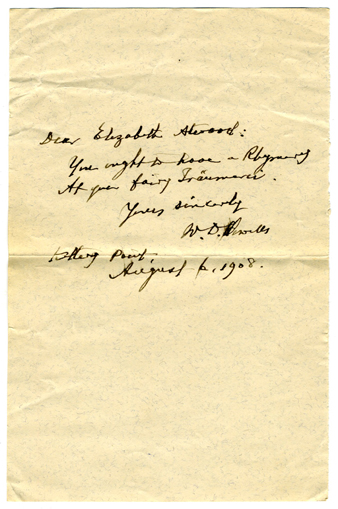 Dear Elizabeth Atwood:
You ought to have a Rhymery
At your fairy Träumerei.
Yours sincerely
W. D. Howells
Kittery Point,
August 6, 1908.